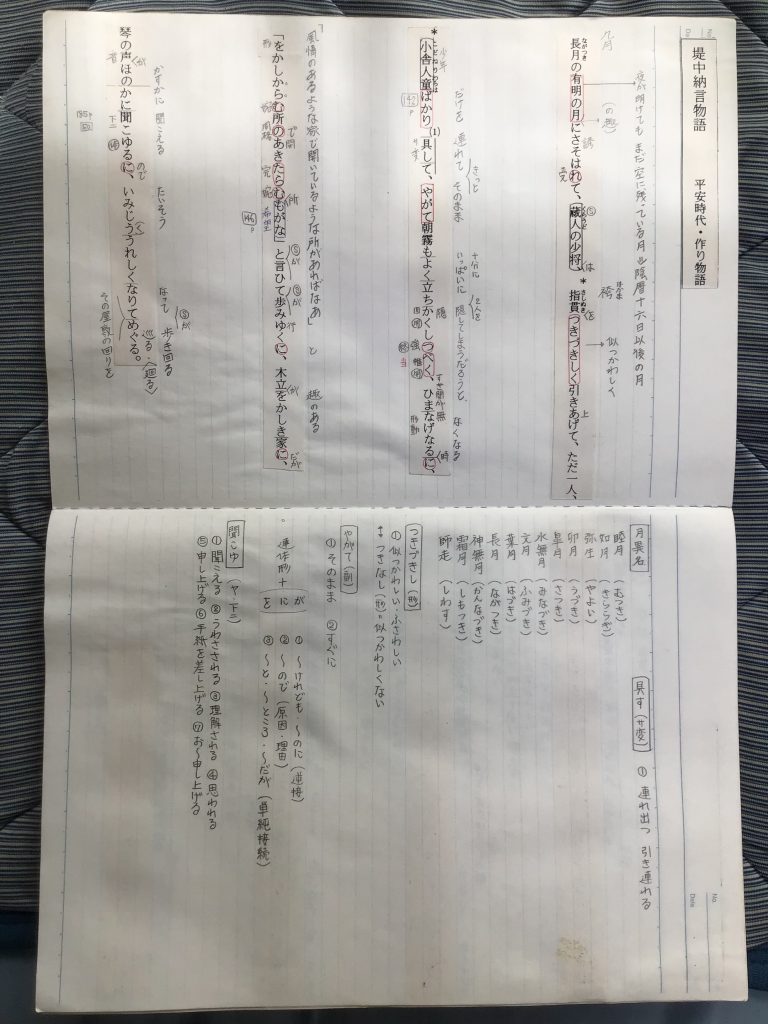 堤中納言物語　平安時代・作り物語
夜が明けてもまだ空に残っている月 陰暦十六日以後の月
九月 （の趣） 誘 袴 はかま 似つかわしく
ながつき さしぬき
長月の有明の月にさそはれて、蔵人の少将、＊指貫つきづきしく引きあげて、ただ一人、
Ⓢ は を 上
少年 だけを 連れて そのまま きっと 十分に いっぱいに 隠してしまうだろうと、 なくなる
＊小舎人童ばかり具して、やがて朝霧もよく立ちかくしつべく、ひまなげなるに、
(1) サ変 隠 強 推 当 すき間が無 形動 時
「風情のあるような家で開いているような所があればなあ」 と 趣のある
「をかしからむ所のあきたらむもがな」と言ひて歩みゆくに、木立をかしき家に、
形 で 開 所 完 希望 146p Ⓢが Ⓢが 行 が だが
かすかに 聞こえる たいそう なって Ⓢが 歩き回る
琴の声ほのかに聞こゆるに、いみじううれしくなりてめぐる。
音 が 下二 ので く 巡る・〈廻る〉
その屋敷の回りを
月異名
睦月（むつき）
如月（きさらぎ）
弥生（やよい）
卯月（うづき）
皐月（さつき）
水無月（みなづき）
文月（ふみづき）
葉月（はづき）
長月（ながつき）
神無月（かんなづき）
霜月（しもつき）
師走（しわす）
具す（サ変） ① 連れ出つ 引き連れる
つきづきし（形）
① 似つかわしい・ふさわしい
↔ つきなし（形）＝似つかわしくない
やがて（副）
① そのまま ② すぐに
。連体形＋ が に を
① 〜けれども・〜のに（逆接）
② 〜ので（原因・理由）
③ 〜と・〜ところ・〜だが（単純接続）
聞こゆ（ヤ・下二）
① 聞こえる ② うわさされる ③ 理解される ④ 思われる
⑤ 申し上げる ⑥ 手紙を差し上げる ⑦ お〜申し上げる
No.
Date